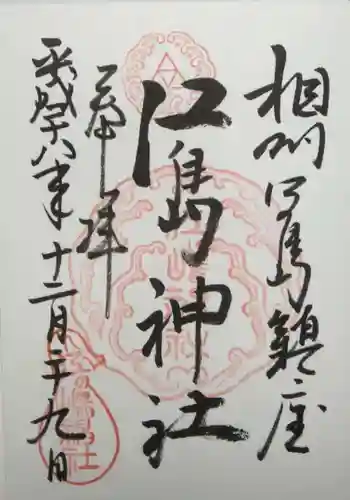 相州江島鎮座
江島神社
奉拝
平成二十八年十二月二十九日